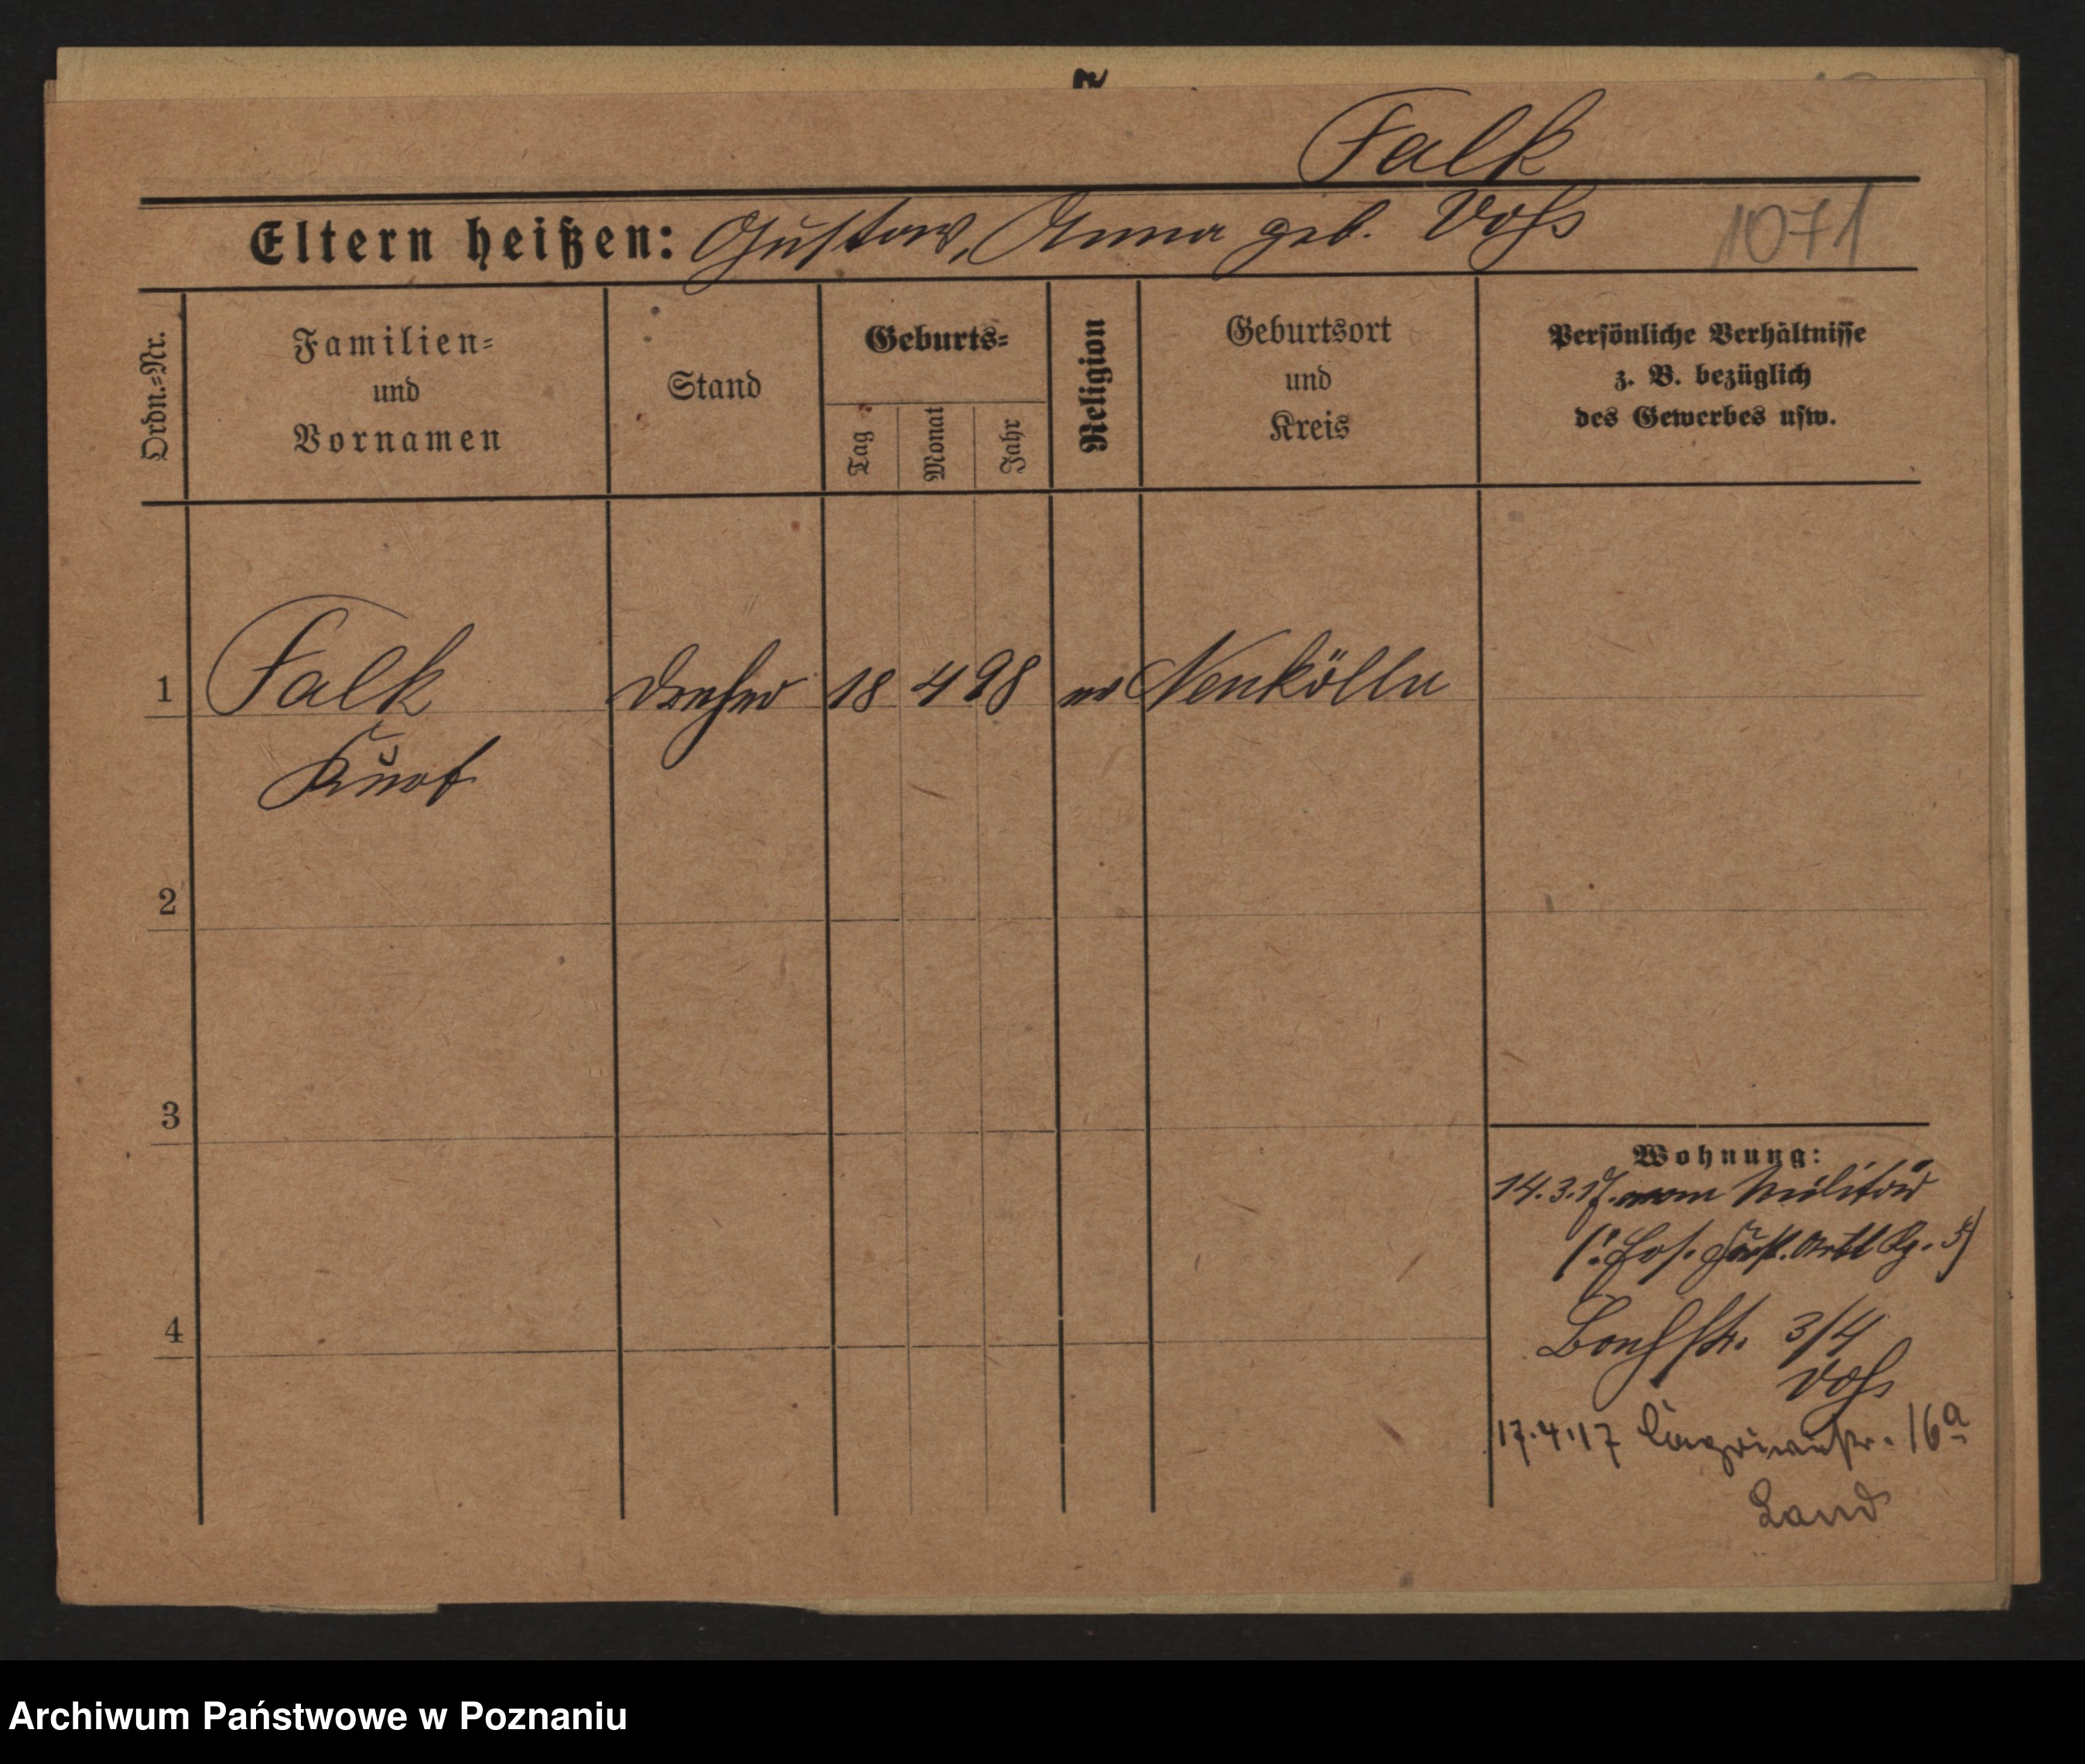 Falk
Eltern heißen: Gustav, Anna geb. Voß
1071
Ordn.=Nr.
Familien=
und
Vornamen
Stand
Geburts=
Tag
Monat
Jahr
Religion
Geburtsort
und
Kreis
Persönliche Verhältnisse
z. B. bezüglich
des Gewerbes usw.
1 Falk Dreher 18 4 98 ev Neukölln
Kurt
2
3
4
Wohnung:
14.3.17. vom Militär
3/4
Voß
17.4.17 16a
Land
Archiwum Państwowe w Poznaniu